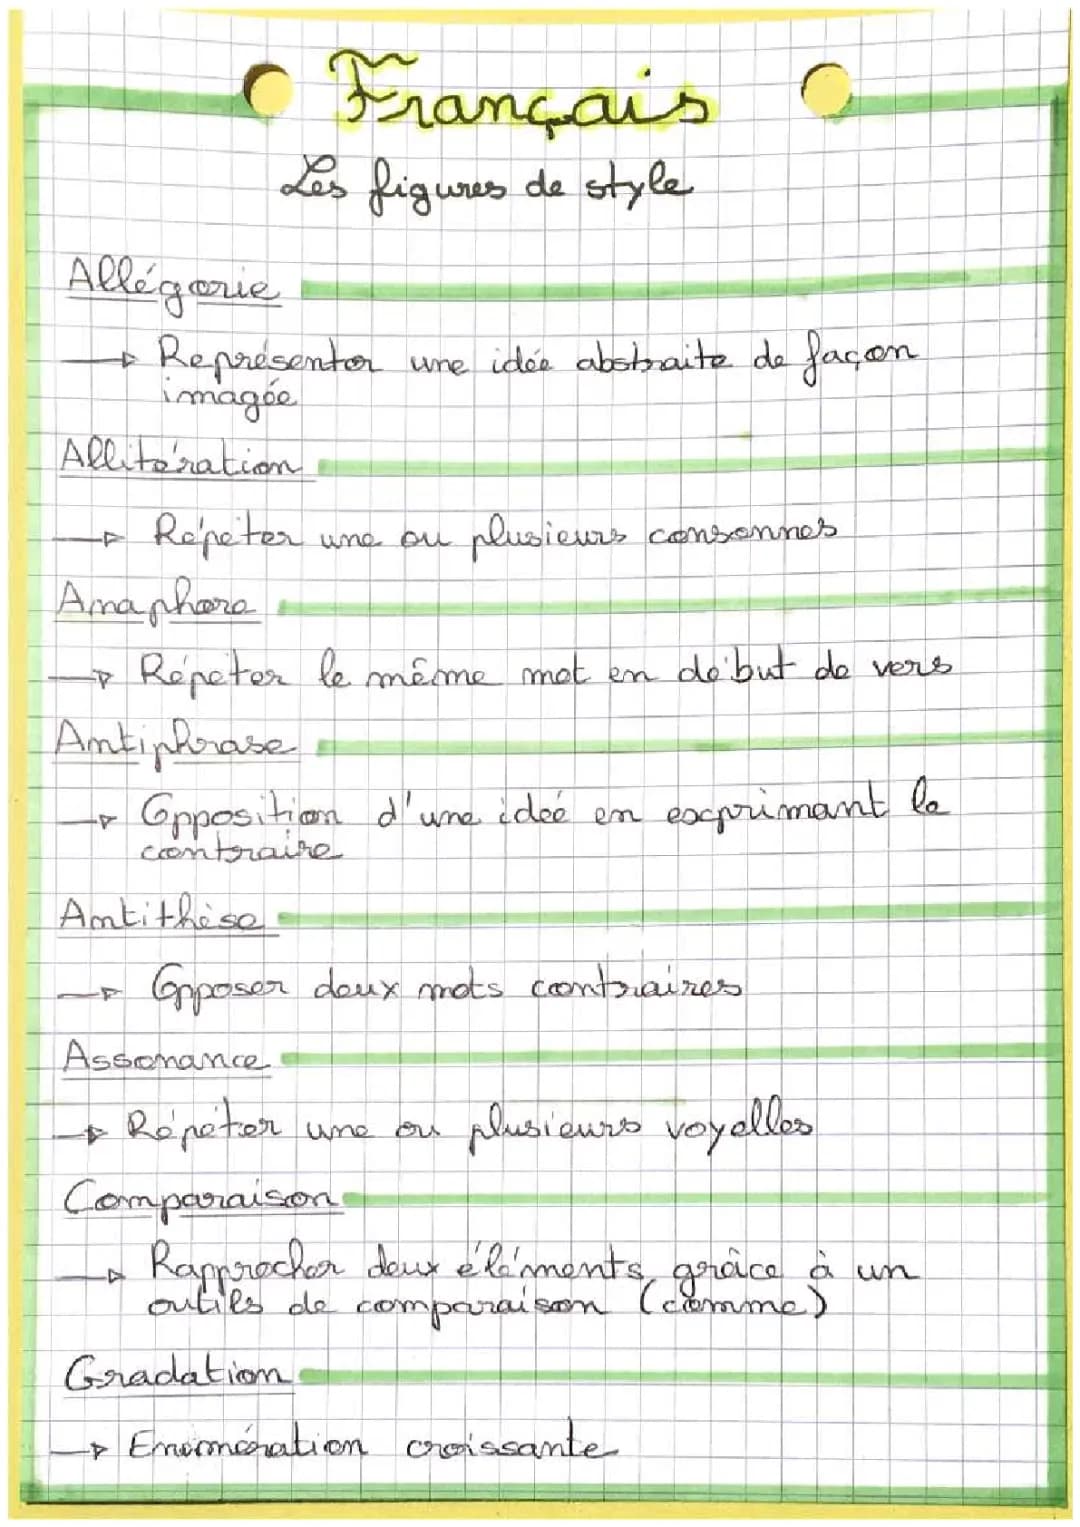 Français
Les figures de style
Allégorie
Représenter une idée abstraite de façon
imagée
Allitération
Répéter une ou plusieurs consonnes
Anaphore
Répéter le même mot en début de vers
Antiphrase
Opposition d'une idée en exprimant le
contraire
Antithèse
Opposer deux mots contraires
Assonance
Répéter une ou plusieurs voyelles
Comparaison
Rapprocher deux éléments grâce à un
outils de comparaison (comme)
Gradation
Enumération croissante